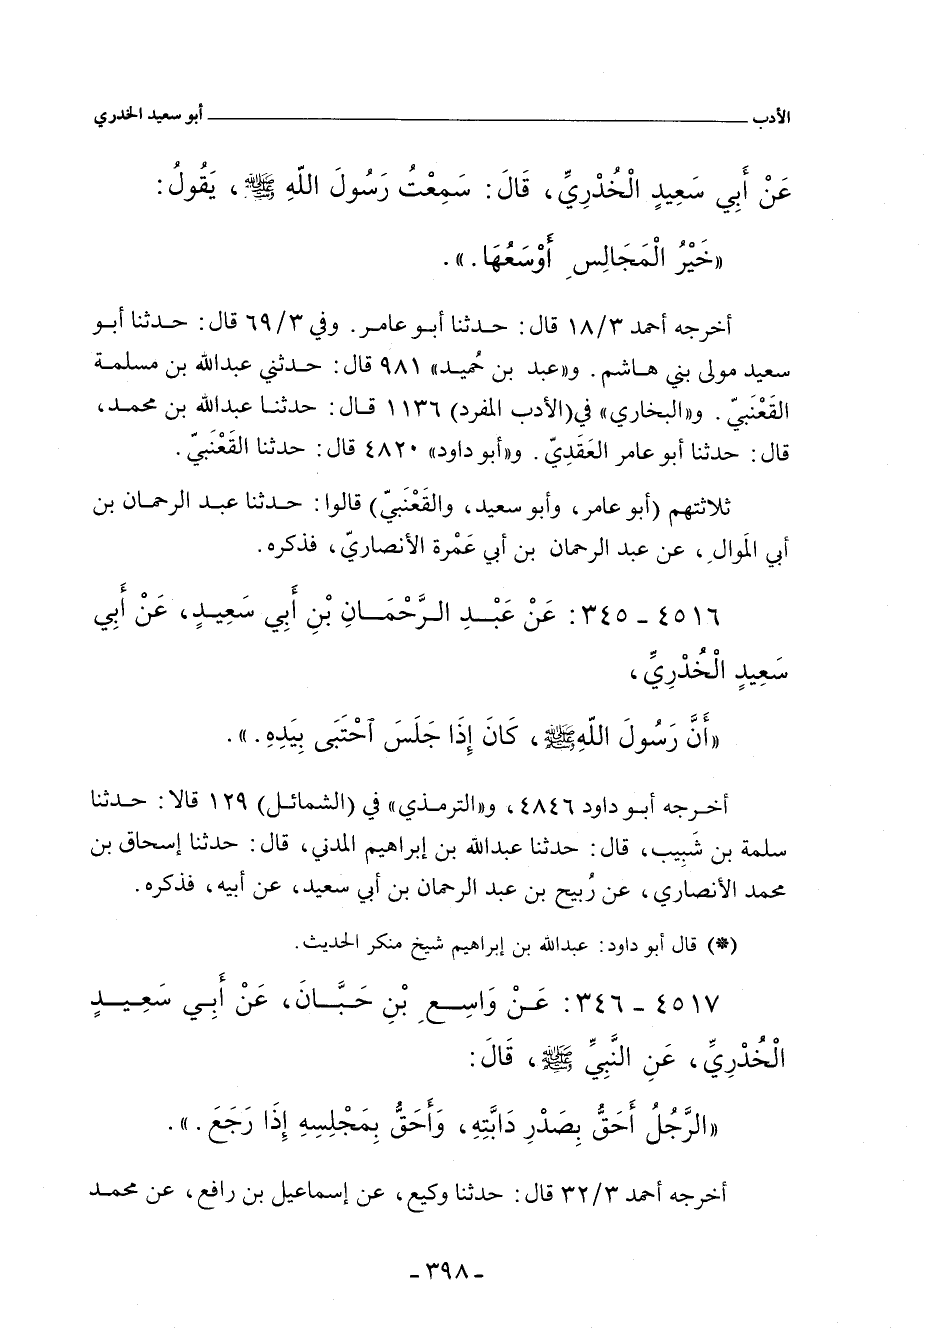 الأدب ــــــــــــــــــــــــــــــــ أبو سعيد الخدري
عَنْ أَبِي سَعِيدٍ الْخُدْرِيِّ، قَالَ: سَمِعْتُ رَسُولَ اللّهِ ﷺ، يَقُولُ:
«خَيْرُ الْمَجَالِسِ أَوْسَعُهَا.».
أخرجه أحمد ١٨/٣ قال: حدثنا أبو عامر. وفي ٦٩/٣ قال: حدثنا أبو
سعيد مولى بني هاشم. و«عبد بن حُميد» ٩٨١ قال: حدثني عبدالله بن مسلمة
القَعْنَبيّ. و«البخاري» في(الأدب المفرد) ١١٣٦ قال: حدثنا عبدالله بن محمد،
قال: حدثنا أبو عامر العَقَدِيّ. و«أبو داود» ٤٨٢٠ قال: حدثنا القَعْنَبيّ.
ثلاثتهم (أبو عامر، وأبو سعيد، والقَعْنَبيّ) قالوا: حدثنا عبد الرحمان بن
أبي المَوالِ، عن عبد الرحمان بن أبي عَمْرة الأنصاريّ، فذكره.
٤٥١٦ - ٣٤٥: عَنْ عَبْدِ الرَّحْمَانِ بْنِ أَبِي سَعِيدٍ، عَنْ أَبِي
سَعِيدٍ الْخُدْرِيِّ،
«أَنَّ رَسُولَ اللّهِ ﷺ، كَانَ إِذَا جَلَسَ ٱحْتَبَى بِيَدِهِ.».
أخرجه أبو داود ٤٨٤٦، و«الترمذي» في (الشمائل) ١٢٩ قالا: حدثنا
سلمة بن شَبِيب، قال: حدثنا عبدالله بن إبراهيم المدني، قال: حدثنا إسحاق بن
محمد الأنصاري، عن رُبيح بن عبد الرحمان بن أبي سعيد، عن أبيه، فذكره.
(*) قال أبو داود: عبدالله بن إبراهيم شيخ منكر الحديث.
٤٥١٧ - ٣٤٦: عَنْ وَاسِعِ بْنِ حَبَّانَ، عَنْ أَبِي سَعِيدٍ
الْخُدْرِيِّ، عَنِ النَّبِيِّ ﷺ، قَالَ:
«الرَّجُلُ أَحَقُّ بِصَدْرِ دَابَّتِهِ، وَأَحَقُّ بِمَجْلِسِهِ إِذَا رَجَعَ.».
أخرجه أحمد ٣٢/٣ قال: حدثنا وكيع، عن إسماعيل بن رافع، عن محمد
- ٣٩٨ -